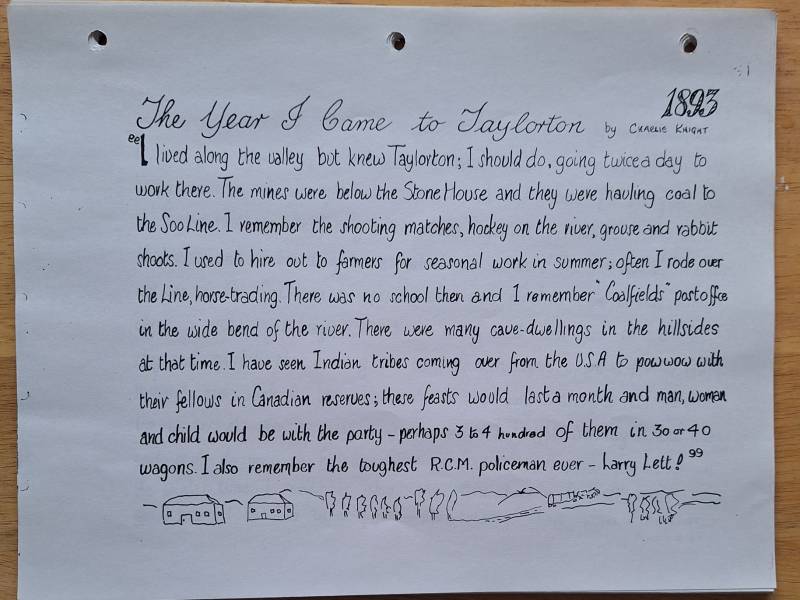 1
1893
The Year I Came to Taylorton by CHARLIE KNIGHT
"I lived along the valley but knew Taylorton; I should do, going twice a day to
work there. The mines were below the Stone House and they were hauling coal to
the Soo Line. I remember the shooting matches, hockey on the river, grouse and rabbit
shoots. I used to hire out to farmers for seasonal work in summer; often I rode over
the Line, horse-trading. There was no school then and I remember "Coalfields" postoffce
in the wide bend of the river. There were many cave-dwellings in the hillsides
at that time. I have seen Indian tribes coming over from the U.S.A to powwow with
their fellows in Canadian reserves; these feasts would last a month and man, woman
and child would be with the party - perhaps 3 to 4 hundred of them in 30 or 40
wagons. I also remember the toughest R.C.M. policeman ever - Larry Lett!"